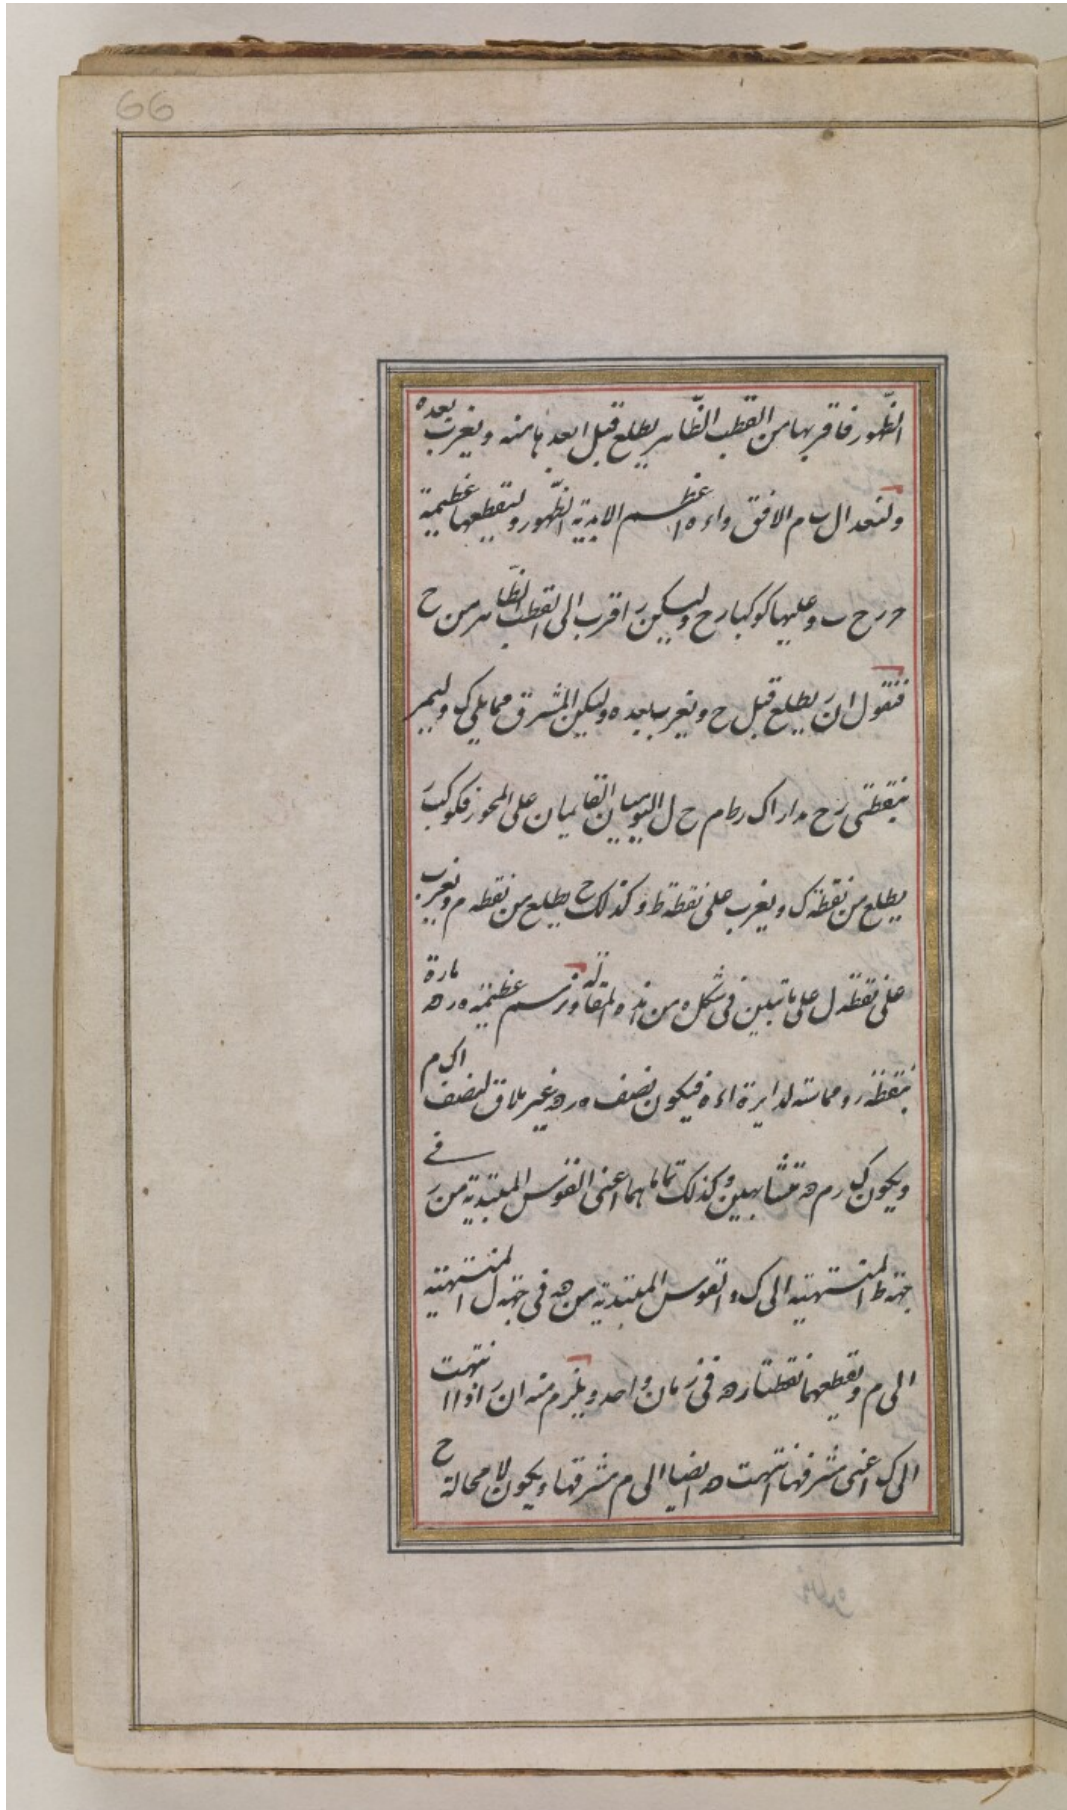 66
الظّهور فاقربها من القطب الظّاهر يطلع قبل ابعدها منه ويغرب بعده
ولنعد ا ل ب م الافق و ا ء ه اعظم الابدية الظّهور وليقطعها عظيمة
ح ر ح ب وعليها كوكبا ر ح وليكن ر اقرب الى القطب الظّاهر من ح
فنقول ان ر يطلع قبل ح ويغرب بعده وليكن المشرق مما يلي ك وليمر
بنقطتى ر ح مدارا ك ر ط م ح ل اليوميان القايمان على المحور فكوكب ر
يطلع من نقطة ك ويغرب على نقطة ط وكذلك ح يطلع من نقطه م ويغرب
على نقطة ل على ما تبين فى شكل ه من هذه المقالة ونرسم عظيمة ه ر ه مارة
بنقطة ر ومماسته لدايرة ا ء ه فيكون نصف ه ر ه غير ملاق لنصف ا ك م
ويكون ك ر م ه متشابهين وكذلك تماماهما اعنى القوس المبتدية من ر في
جهة ط المنتهية الى ك والقوس المبتدية من ه فى جهة ل المنتهية
الى م ويقطعهما نقطتا ر ه فى زمان واحد ويلزم منه ان ر اذا انتهت
الى ك اعنى مشرقها انتهت ه ايضا الى م مشرقها ويكون لا محالة ح